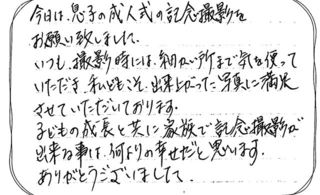 今日は、息子の成人式の記念撮影を
お願い致しまして、
いつも、撮影時には、細かい所まで気を使って
いただき、私どもこそ、出来上がった写真に満足
させていただいております。
子どもの成長と共に家族で記念撮影が
出来る事は、何よりの幸せだと思います。
ありがとうございまして。